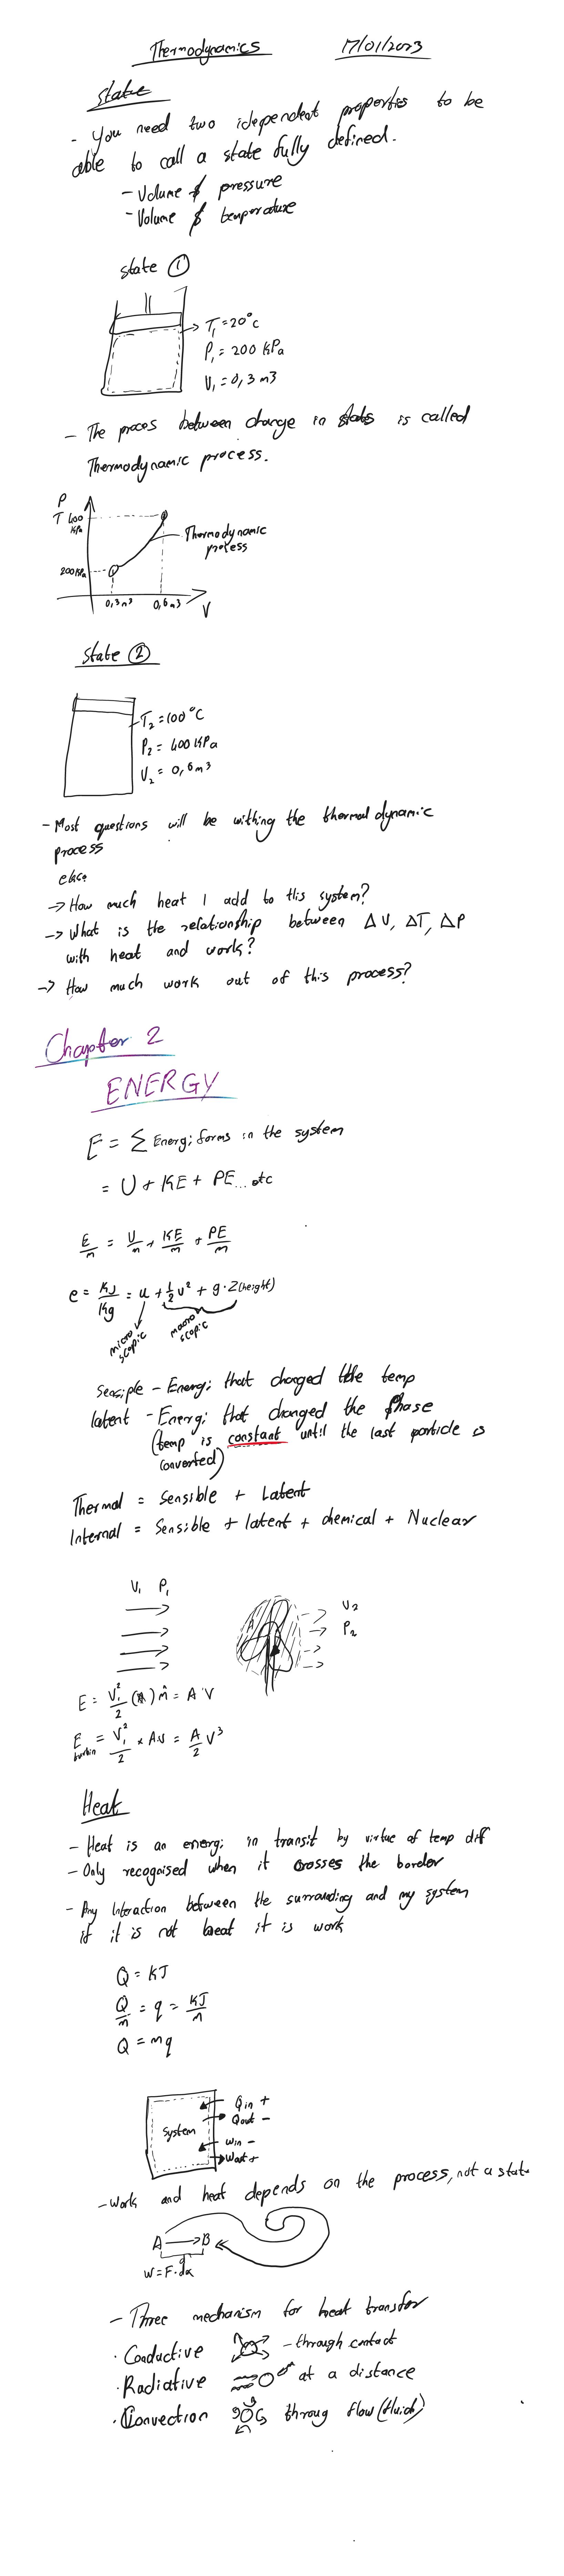 Thermodynamics 17/01/2023
State
- You need two idependent properties to be
able to call a state fully defined.
- Volume & pressure
- Volume & temperature
state ①
T₁ = 20°C
P₁ = 200 KPa
V₁ = 0,3 m3
- The proces between change in state is called
Thermodynamic process.
P
T 400
KPa
Thermodynamic
process
200KPa
0,3m3 0,6m3
V
State ②
T₂ = 100°C
P₂ = 400 KPa
V₂ = 0,6 m3
- Most questions will be withing the thermal dynamic
process
-> How much heat I add to this system?
-> What is the relationship between ΔV, ΔT, ΔP
with heat and work?
-> How much work out of this process?
Chapter 2
ENERGY
E = Σ Energi forms in the system
= U + KE + PE... etc
E/m = U/m + KE/m + PE/m
e = KJ/Kg = u + 1/2 v² + g·Z(height)
micro
scopic
macro
scopic
Sensiple - Energi that changed the temp
latent - Energi that changed the phase
(temp is constant until the last particle is
converted)
Thermal = Sensible + Latent
Internal = Sensible + latent + chemical + Nuclear
V₁ P₁
V₂
P₂
E = V₁²/2 ṁ = A·V
E = V₁²/2 × A.v = A/2 V³
Heat
- Heat is an energi in transit by virtue of temp diff
- Only recognised when it crosses the border
- Any Interaction between the surrounding and my system
if it is not heat it is work
Q = KJ
Q/m = q = KJ/m
Q = mq
System
Qin +
Qout -
Win -
Wout +
- Work and heat depends on the process, not a state
A B
W = F·dx
- Three mechanism for heat transfer
· Conductive - through contact
· Radiative at a distance
· Convection throug flow (fluid)